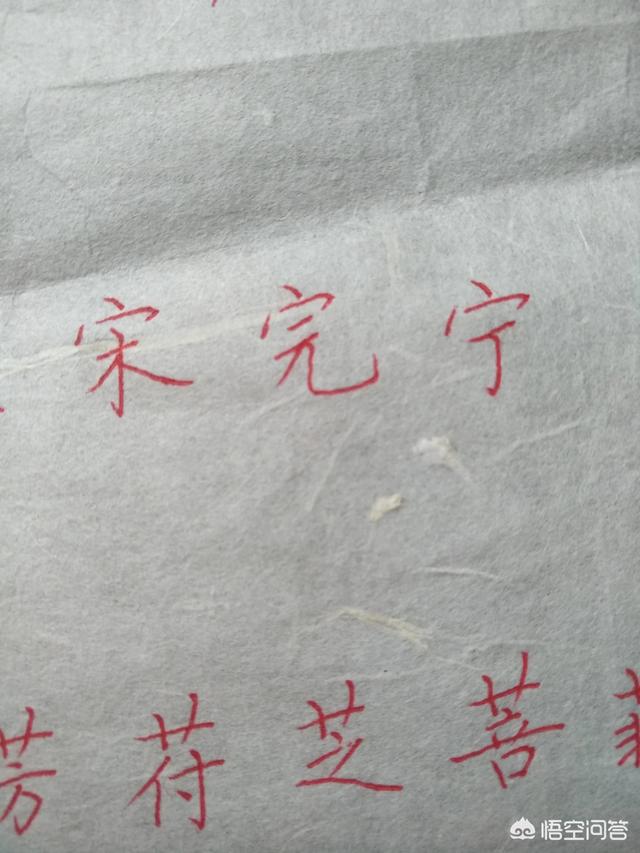 宋完宁
芳苻芝菩
悟空问答